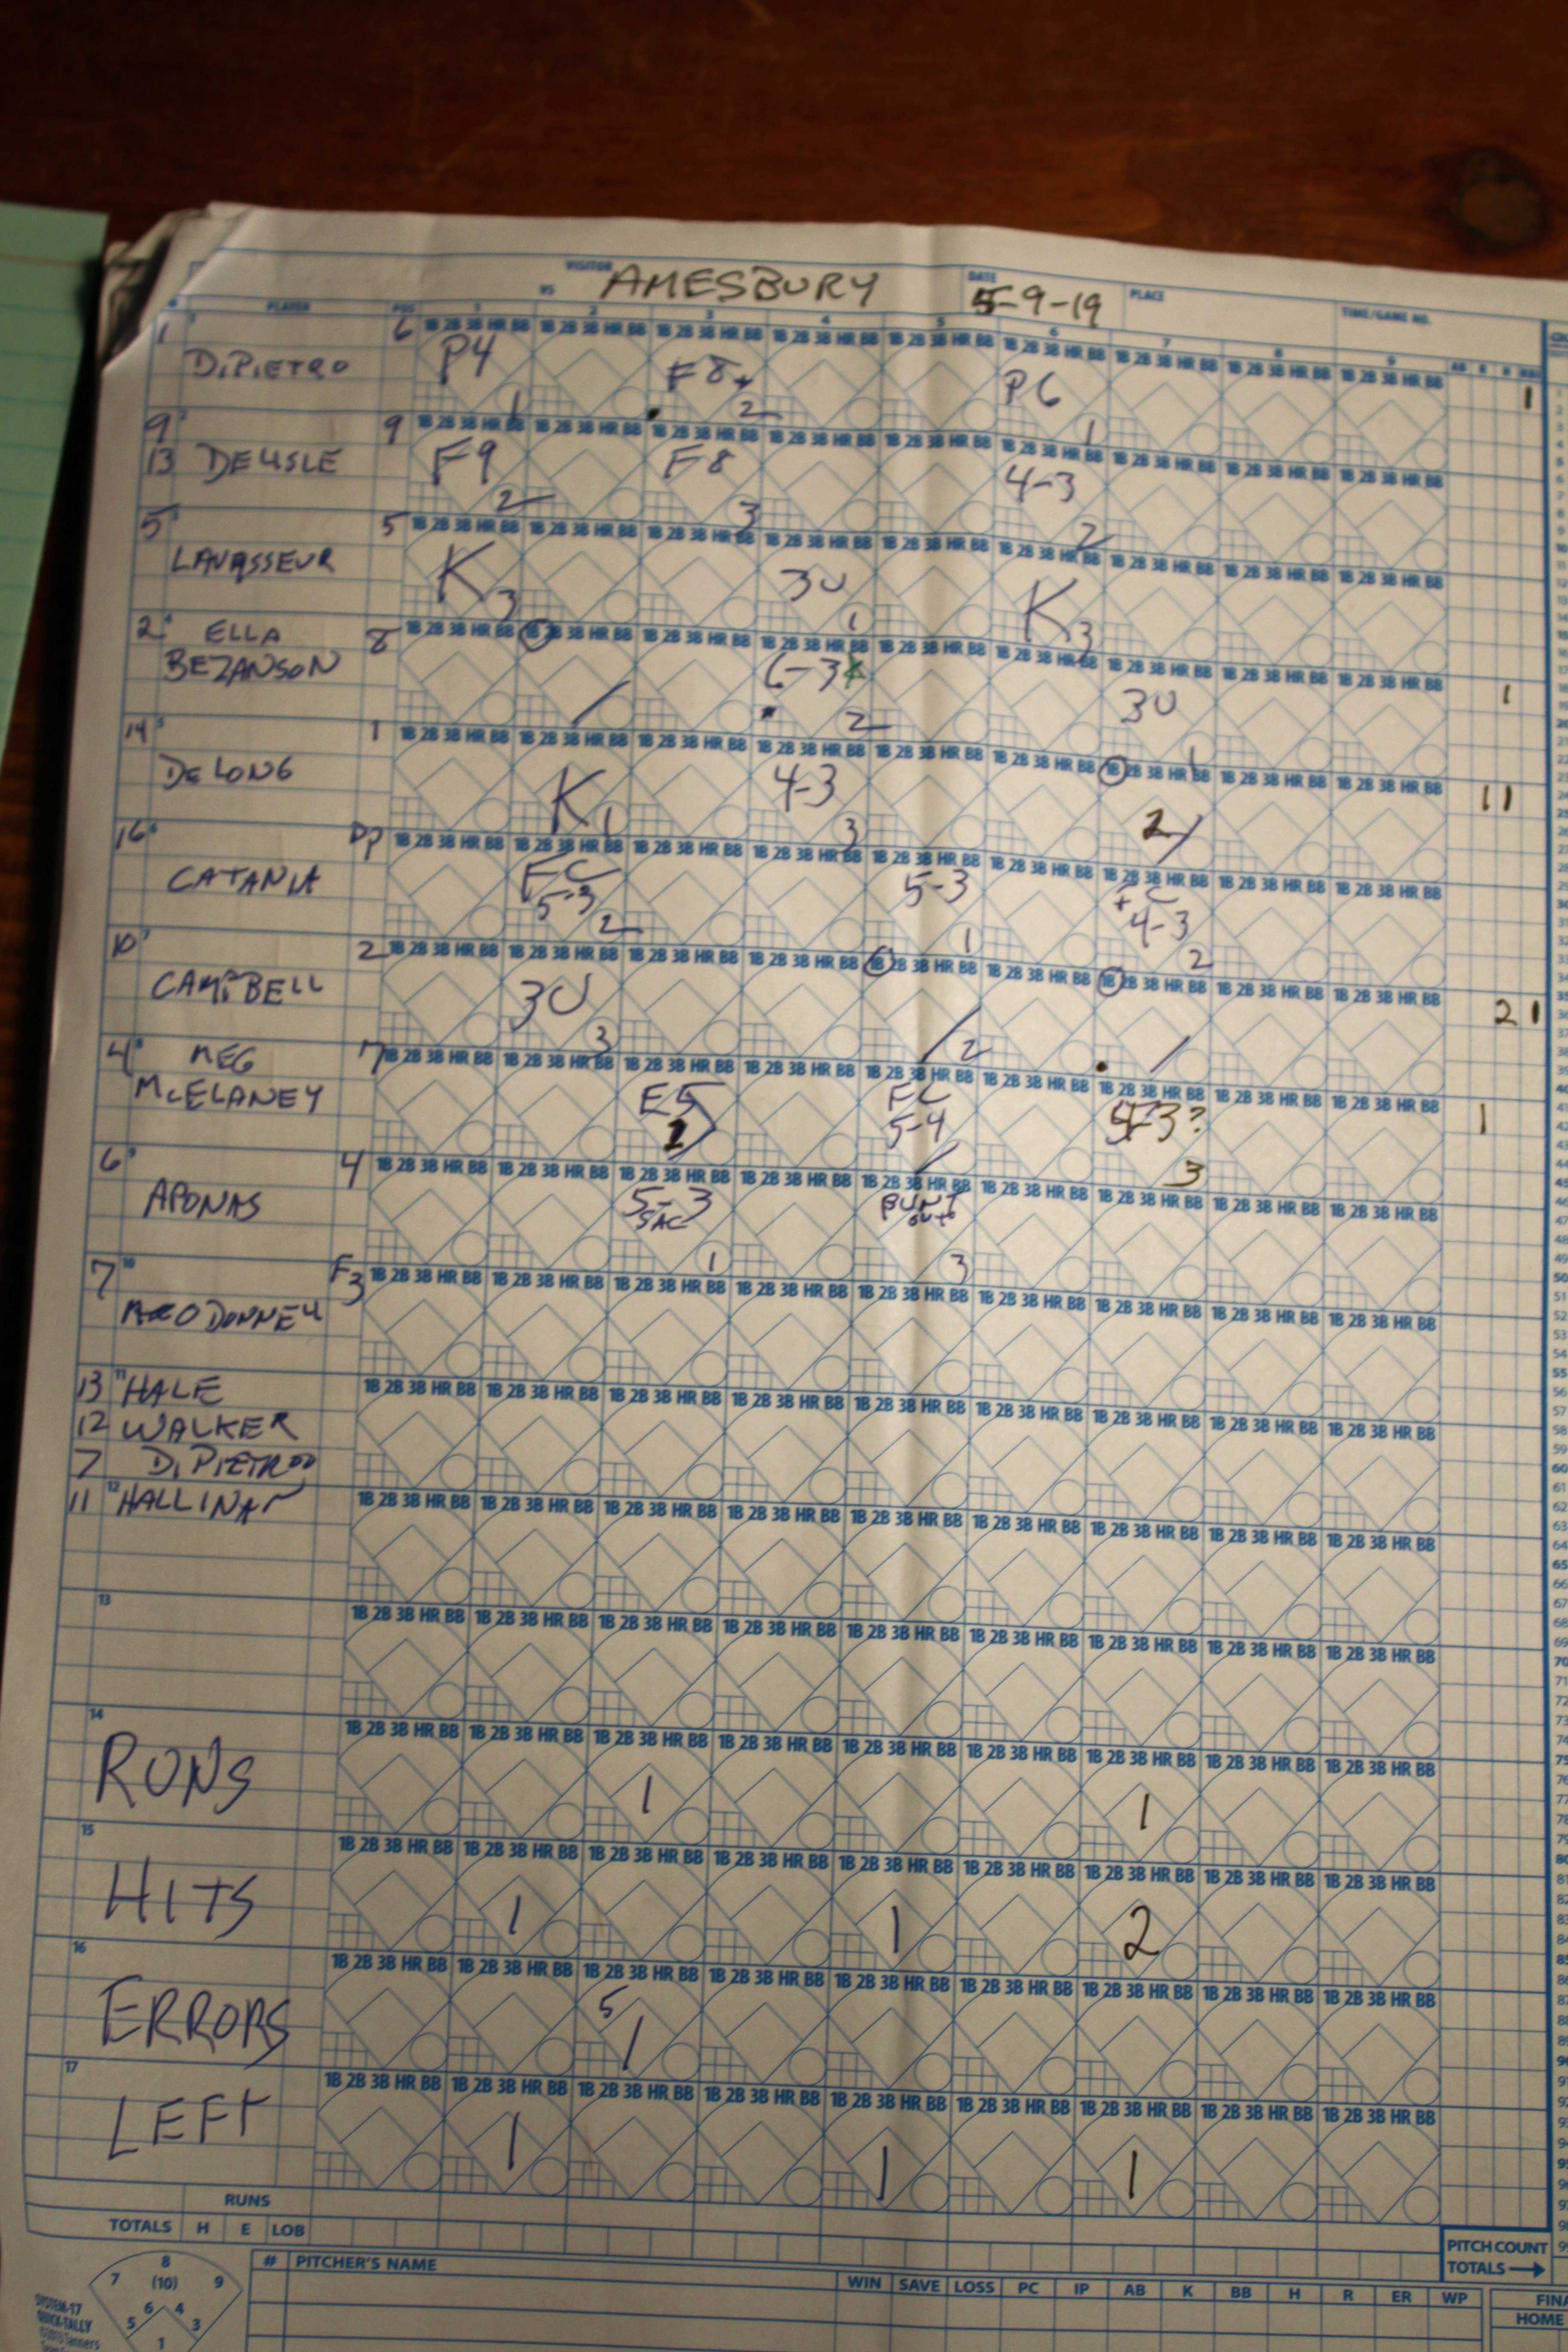 VISITOR
VS AMESBURY
DATE 5-9-19
PLACE
TIME/GAME NO.
# PLAYER POS 1 2 3 4 5 6 7 8 9 AB R H RBI
1 DiPiETRO 6 P4 1 F8 2 P6 1 1
9 9
13 DELISLE F9 2 F8 3 4-3 2
5 LAVASSEUR 5 K 3 3U 1 K 3
2 ELLA BEZANSON 8 6-3 2 3U 1 1
14 DELONG 1 K 1 4-3 3 2 1 1
16 CATANIA DP FC 5-3 2 5-3 1 FC 4-3 2
10 CAMPBELL 2 3U 3 2 2 1
4 MEG McELANEY 7 E5 1 FC 5-4 5-3? 3 1
6 APONAS 4 5-3 SAC 1 BUNT OUT 3
7 F3
13 HALE
12 WALKER
7 DiPIETRO
11 HALLINAN
13
14 RUNS 1 1
15 HITS 1 1 2
16 ERRORS 5 1
17 LEFT 1 1 1
RUNS
TOTALS H E LOB
PITCH COUNT
TOTALS
# PITCHER'S NAME WIN SAVE LOSS PC IP AB K BB H R ER WP
HOME
8
7 (10) 9
6 4
5 3
1
SYSTEM-17
QUICK-TALLY